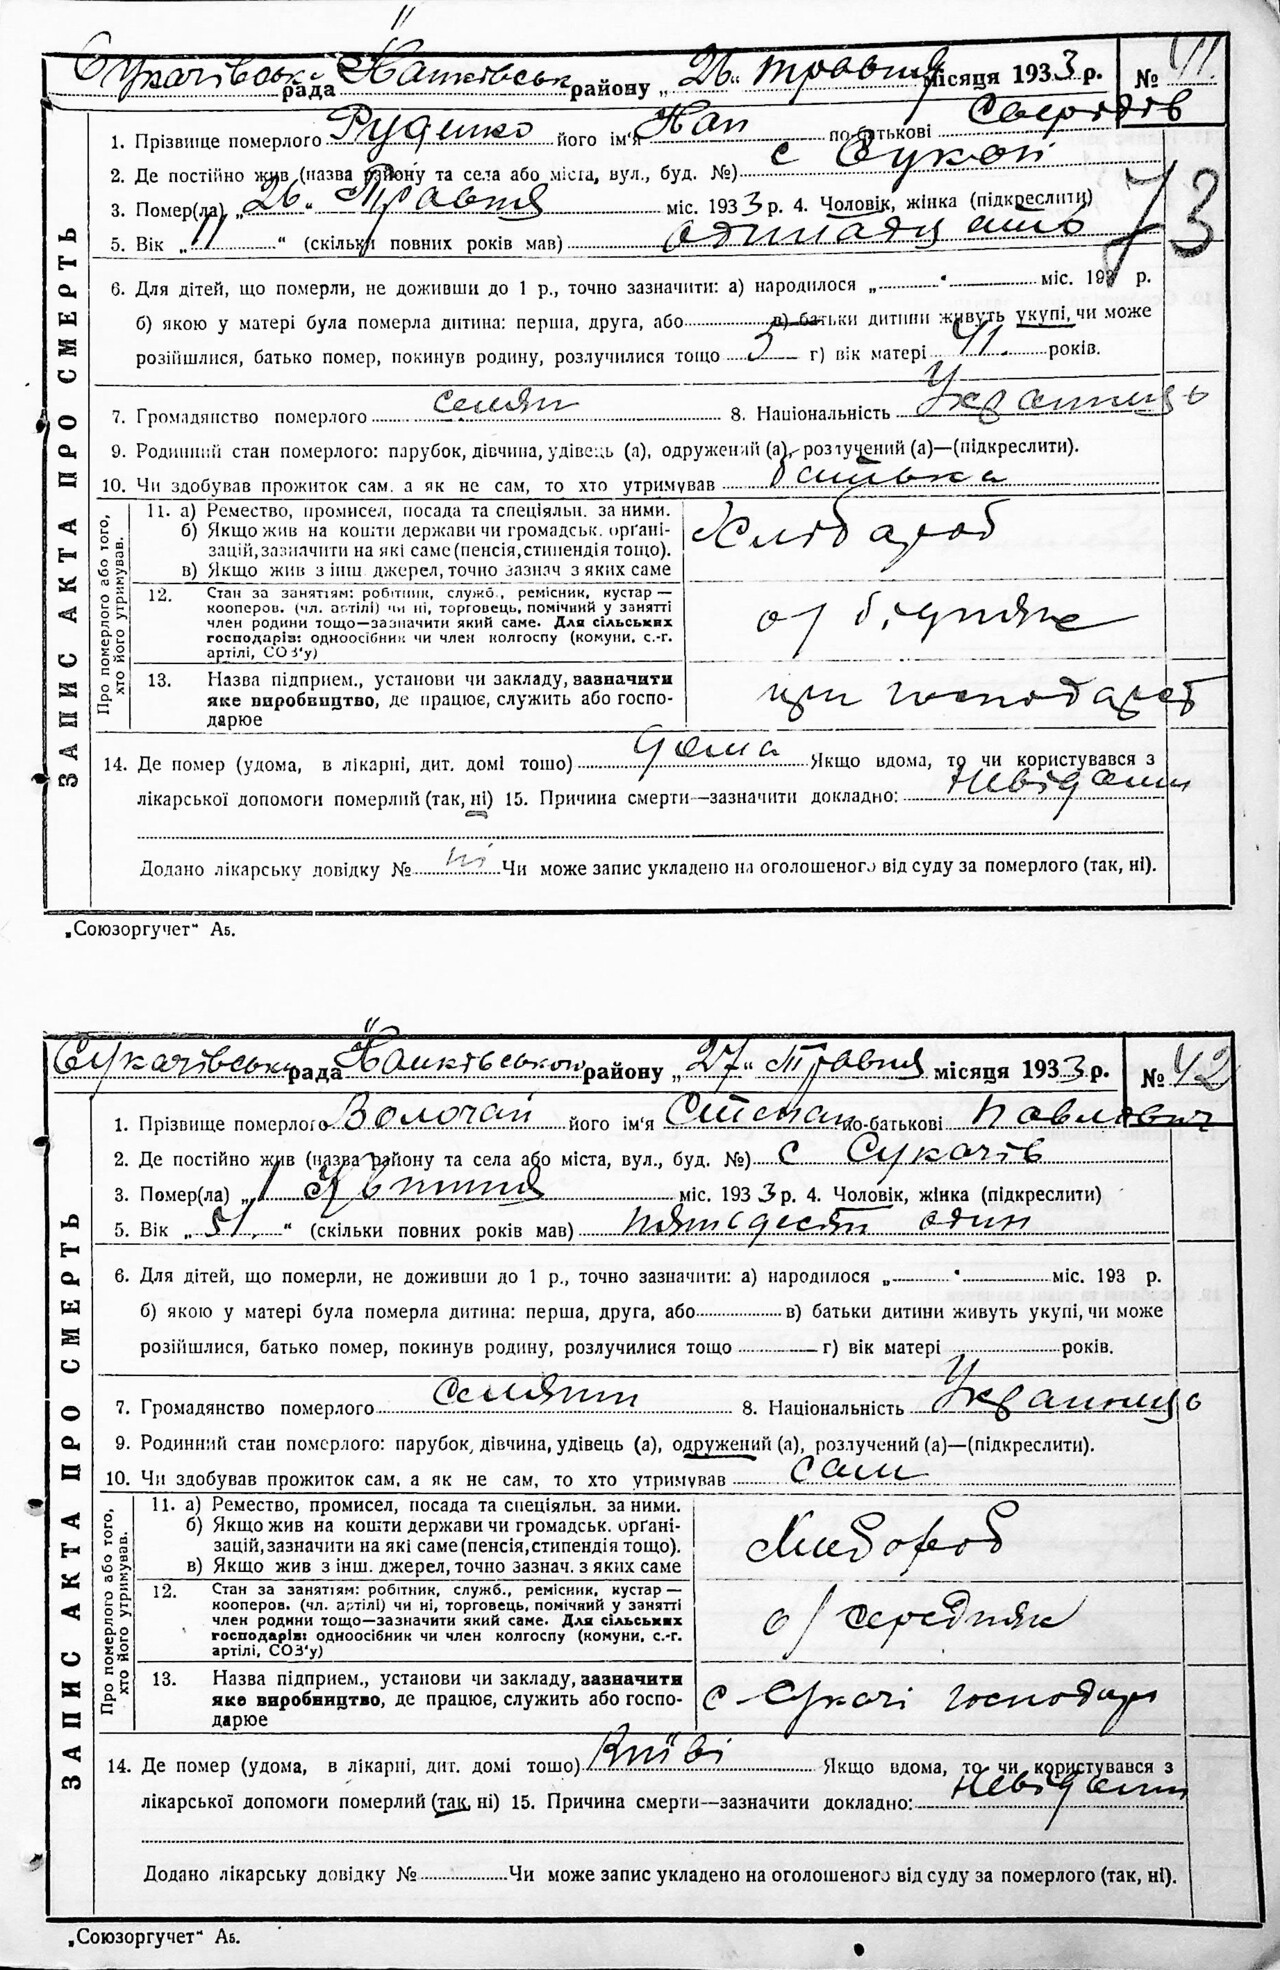 Сукачівська рада районy „26“ травня місяця 1933 р. № 41.
1. Прізвище померлого Руденко його ім'я по-батькові
2. Де постійно жив (назва району та села або міста, вул., буд. №) с
3. Помер(ла) „26“ Травня міс. 1933 р. 4. Чоловік, жінка (підкреслити)
73
5. Вік „11“ (скільки повних років мав) одинадцять
6. Для дітей, що померли, не доживши до 1 р., точно зазначити: а) народилося „ “ міс. 193 р.
б) якою у матері була померла дитина: перша, друга, або в) батьки дитини живуть укупі, чи може
розійшлися, батько помер, покинув родину, розлучилися тощо 3 г) вік матері 41. років.
7. Громадянство померлого селян 8. Національність Українець
9. Родинний стан померлого: парубок, дівчина, удівець (а), одружений (а), розлучений (а)—(підкреслити).
10. Чи здобував прожиток сам, а як не сам, то хто утримував батька
ЗАПИС АКТА ПРО СМЕРТЬ
Про померлого або того,
хто його утримував.
11. а) Ремество, промисел, посада та спеціяльн. за ними.
б) Якщо жив на кошти держави чи громадськ. орґані-
зацій, зазначити на які саме (пенсія, стипендія тощо).
в) Якщо жив з інш. джерел, точно зазнач з яких саме
Хлібароб
12. Стан за занятіям: робітник, служб., ремісник, кустар—
кооперов. (чл. артілі) чи ні, торговець, помічний у занятті
член родини тощо—зазначити який саме. Для сільських
господарів: одноосібник чи член колгоспу (комуни, с.-г.
артілі, СОЗ'у)
о/ бідняк
13. Назва підприєм., установи чи закладу, зазначити
яке виробництво, де працює, служить або госпо-
дарює
при господарст
14. Де помер (удома, в лікарні, дит. домі тощо) дома Якщо вдома, то чи користувався з
лікарської допомоги померлий (так, ні) 15. Причина смерти—зазначити докладно: Невідомо
Додано лікарську довідку № ні Чи може запис укладено на оголошеного від суду за померлого (так, ні).
„Союзоргучет“ А5.
Сукачівська рада районy „27“ Травня місяця 1933 р. № 42
1. Прізвище померлого Волочай його ім'я Степан по-батькові Павлович
2. Де постійно жив (назва району та села або міста, вул., буд. №) с Сукачів
3. Помер(ла) „1 Квітня міс. 1933 р. 4. Чоловік, жінка (підкреслити)
5. Вік „51.“ (скільки повних років мав) пятьдесят один
6. Для дітей, що померли, не доживши до 1 р., точно зазначити: а) народилося „ “ міс. 193 р.
б) якою у матері була померла дитина: перша, друга, або в) батьки дитини живуть укупі, чи може
розійшлися, батько помер, покинув родину, розлучилися тощо г) вік матері років.
7. Громадянство померлого селянин 8. Національність Українець
9. Родинний стан померлого: парубок, дівчина, удівець (а), одружений (а), розлучений (а)—(підкреслити).
10. Чи здобував прожиток сам, а як не сам, то хто утримував сам
ЗАПИС АКТА ПРО СМЕРТЬ
Про померлого або того,
хто його утримував.
11. а) Ремество, промисел, посада та спеціяльн. за ними.
б) Якщо жив на кошти держави чи громадськ. орґані-
зацій, зазначити на які саме (пенсія, стипендія тощо).
в) Якщо жив з інш. джерел, точно зазнач. з яких саме
Хлібороб
12. Стан за занятіям: робітник, служб., ремісник, кустар—
кооперов. (чл. артілі) чи ні, торговець, помічний у занятті
член родини тощо—зазначити який саме. Для сільських
господарів: одноосібник чи член колгоспу (комуни, с.-г.
артілі, СОЗ'у)
о/ середняк
13. Назва підприєм., установи чи закладу, зазначити
яке виробництво, де працює, служить або госпо-
дарює
с Сукачі господар
14. Де помер (удома, в лікарні, дит. домі тощо) Київі Якщо вдома, то чи користувався з
лікарської допомоги померлий (так, ні) 15. Причина смерти—зазначити докладно: Невідомо
Додано лікарську довідку № Чи може запис укладено на оголошеного від суду за померлого (так, ні).
„Союзоргучет“ А5.